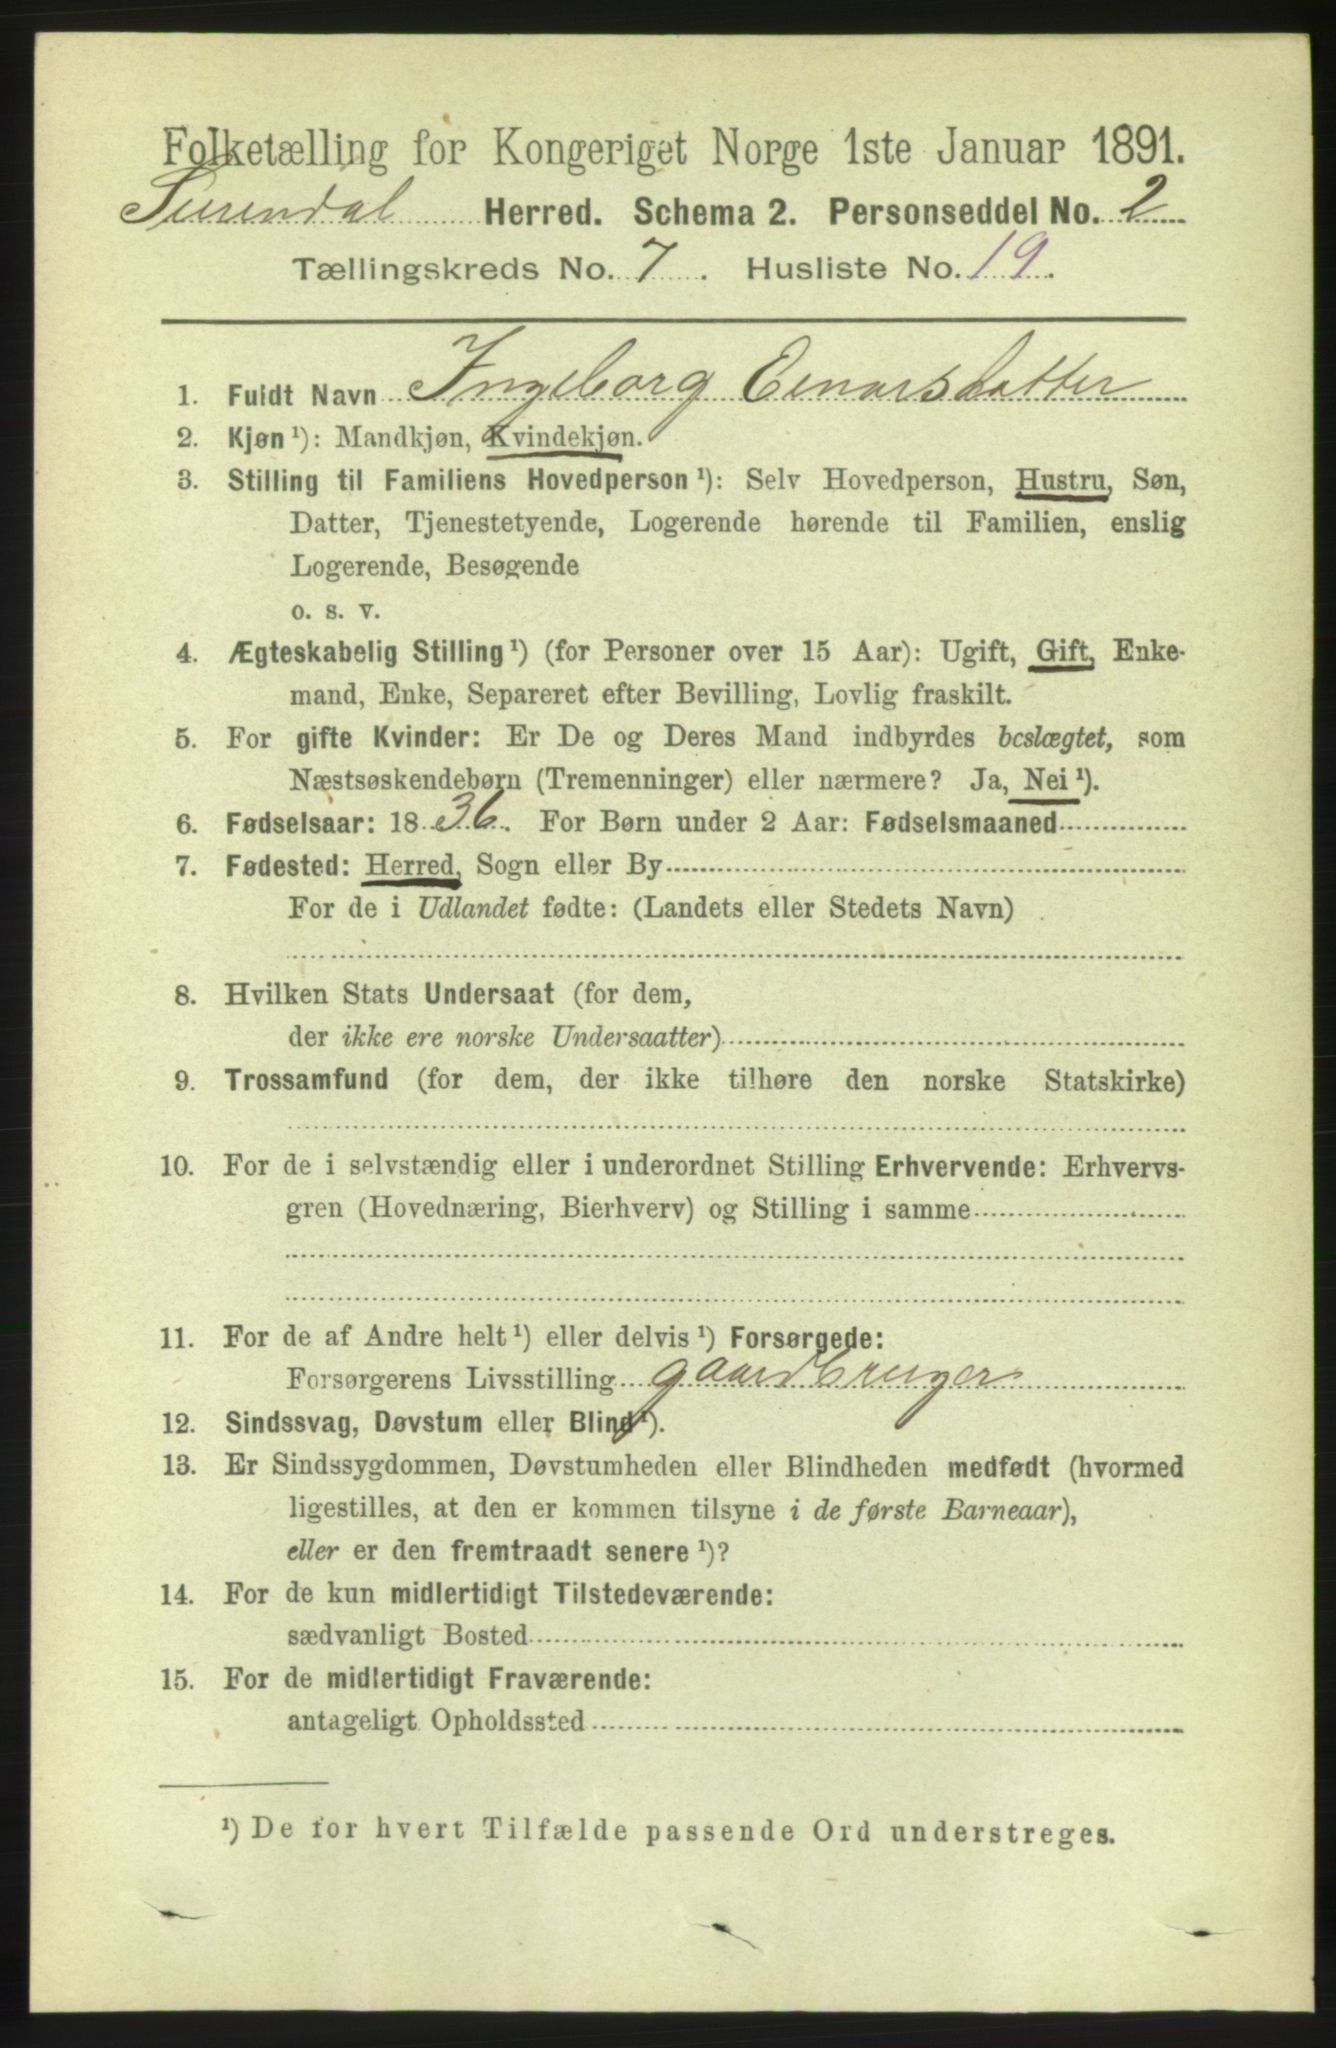 Folketælling for Kongeriget Norge 1ste Januar 1891.
Surendal Herred. Schema 2. Personseddel No. 2
Tællingskreds No. 7. Husliste No. 19.
1. Fuldt Navn Ingeborg Einarsdatter
2. Kjøn¹): Mandkjøn, Kvindekjøn.
3. Stilling til Familiens Hovedperson¹): Selv Hovedperson, Hustru, Søn,
Datter, Tjenestetyende, Logerende hørende til Familien, enslig
Logerende, Besøgende
o. s. v.
4. Ægteskabelig Stilling¹) (for Personer over 15 Aar): Ugift, Gift, Enke-
mand, Enke, Separeret efter Bevilling, Lovlig fraskilt.
5. For gifte Kvinder: Er De og Deres Mand indbyrdes beslægtet, som
Næstsøskendebørn (Tremenninger) eller nærmere? Ja, Nei¹).
6. Fødselsaar: 1836. For Børn under 2 Aar: Fødselsmaaned
7. Fødested: Herred, Sogn eller By
For de i Udlandet fødte: (Landets eller Stedets Navn)
8. Hvilken Stats Undersaat (for dem,
der ikke ere norske Undersaatter)
9. Trossamfund (for dem, der ikke tilhøre den norske Statskirke)
10. For de i selvstændig eller i underordnet Stilling Erhvervende: Erhvervs-
gren (Hovednæring, Bierhverv) og Stilling i samme
11. For de af Andre helt¹) eller delvis¹) Forsørgede:
Forsørgerens Livsstilling gaardbruger
12. Sindssvag, Døvstum eller Blind¹).
13. Er Sindssygdommen, Døvstumheden eller Blindheden medfødt (hvormed
ligestilles, at den er kommen tilsyne i de første Barneaar),
eller er den fremtraadt senere¹)?
14. For de kun midlertidigt Tilstedeværende:
sædvanligt Bosted
15. For de midlertidigt Fraværende:
antageligt Opholdssted
¹) De for hvert Tilfælde passende Ord understreges.